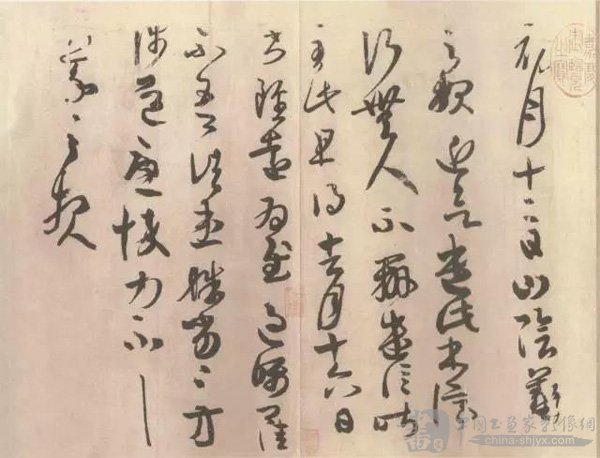 初月十二日山陰羲
之報近欲遣此書停
行無人不辦遣信昨
至此且得去月十六日
書雖遠為慰過囑卿佳
不吾諸患殊劣殊劣方
涉道憂悴力不具
羲之報
中國書畫家影像網
china-shjyx.com